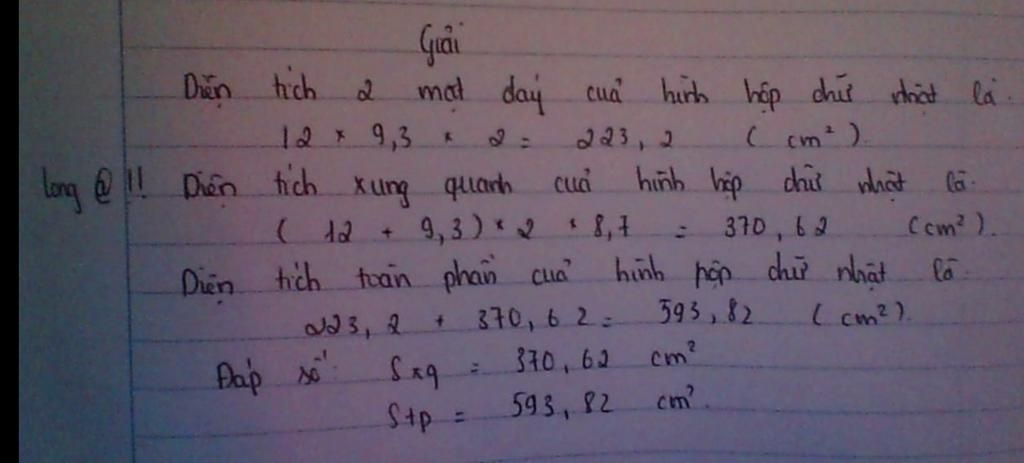 Giải
Diện tích 2 mặt đáy của hình hộp chữ nhật là.
12 × 9,3 × 2 = 223,2 (cm²).
long @ !! Diện tích xung quanh của hình hộp chữ nhật là.
(12 + 9,3) × 2 × 8,7 = 370,62 (cm²).
Diện tích toàn phần của hình hộp chữ nhật là
223,2 + 370,62 = 593,82 (cm²).
Đáp số: Sxq = 370,62 cm²
Stp = 593,82 cm².